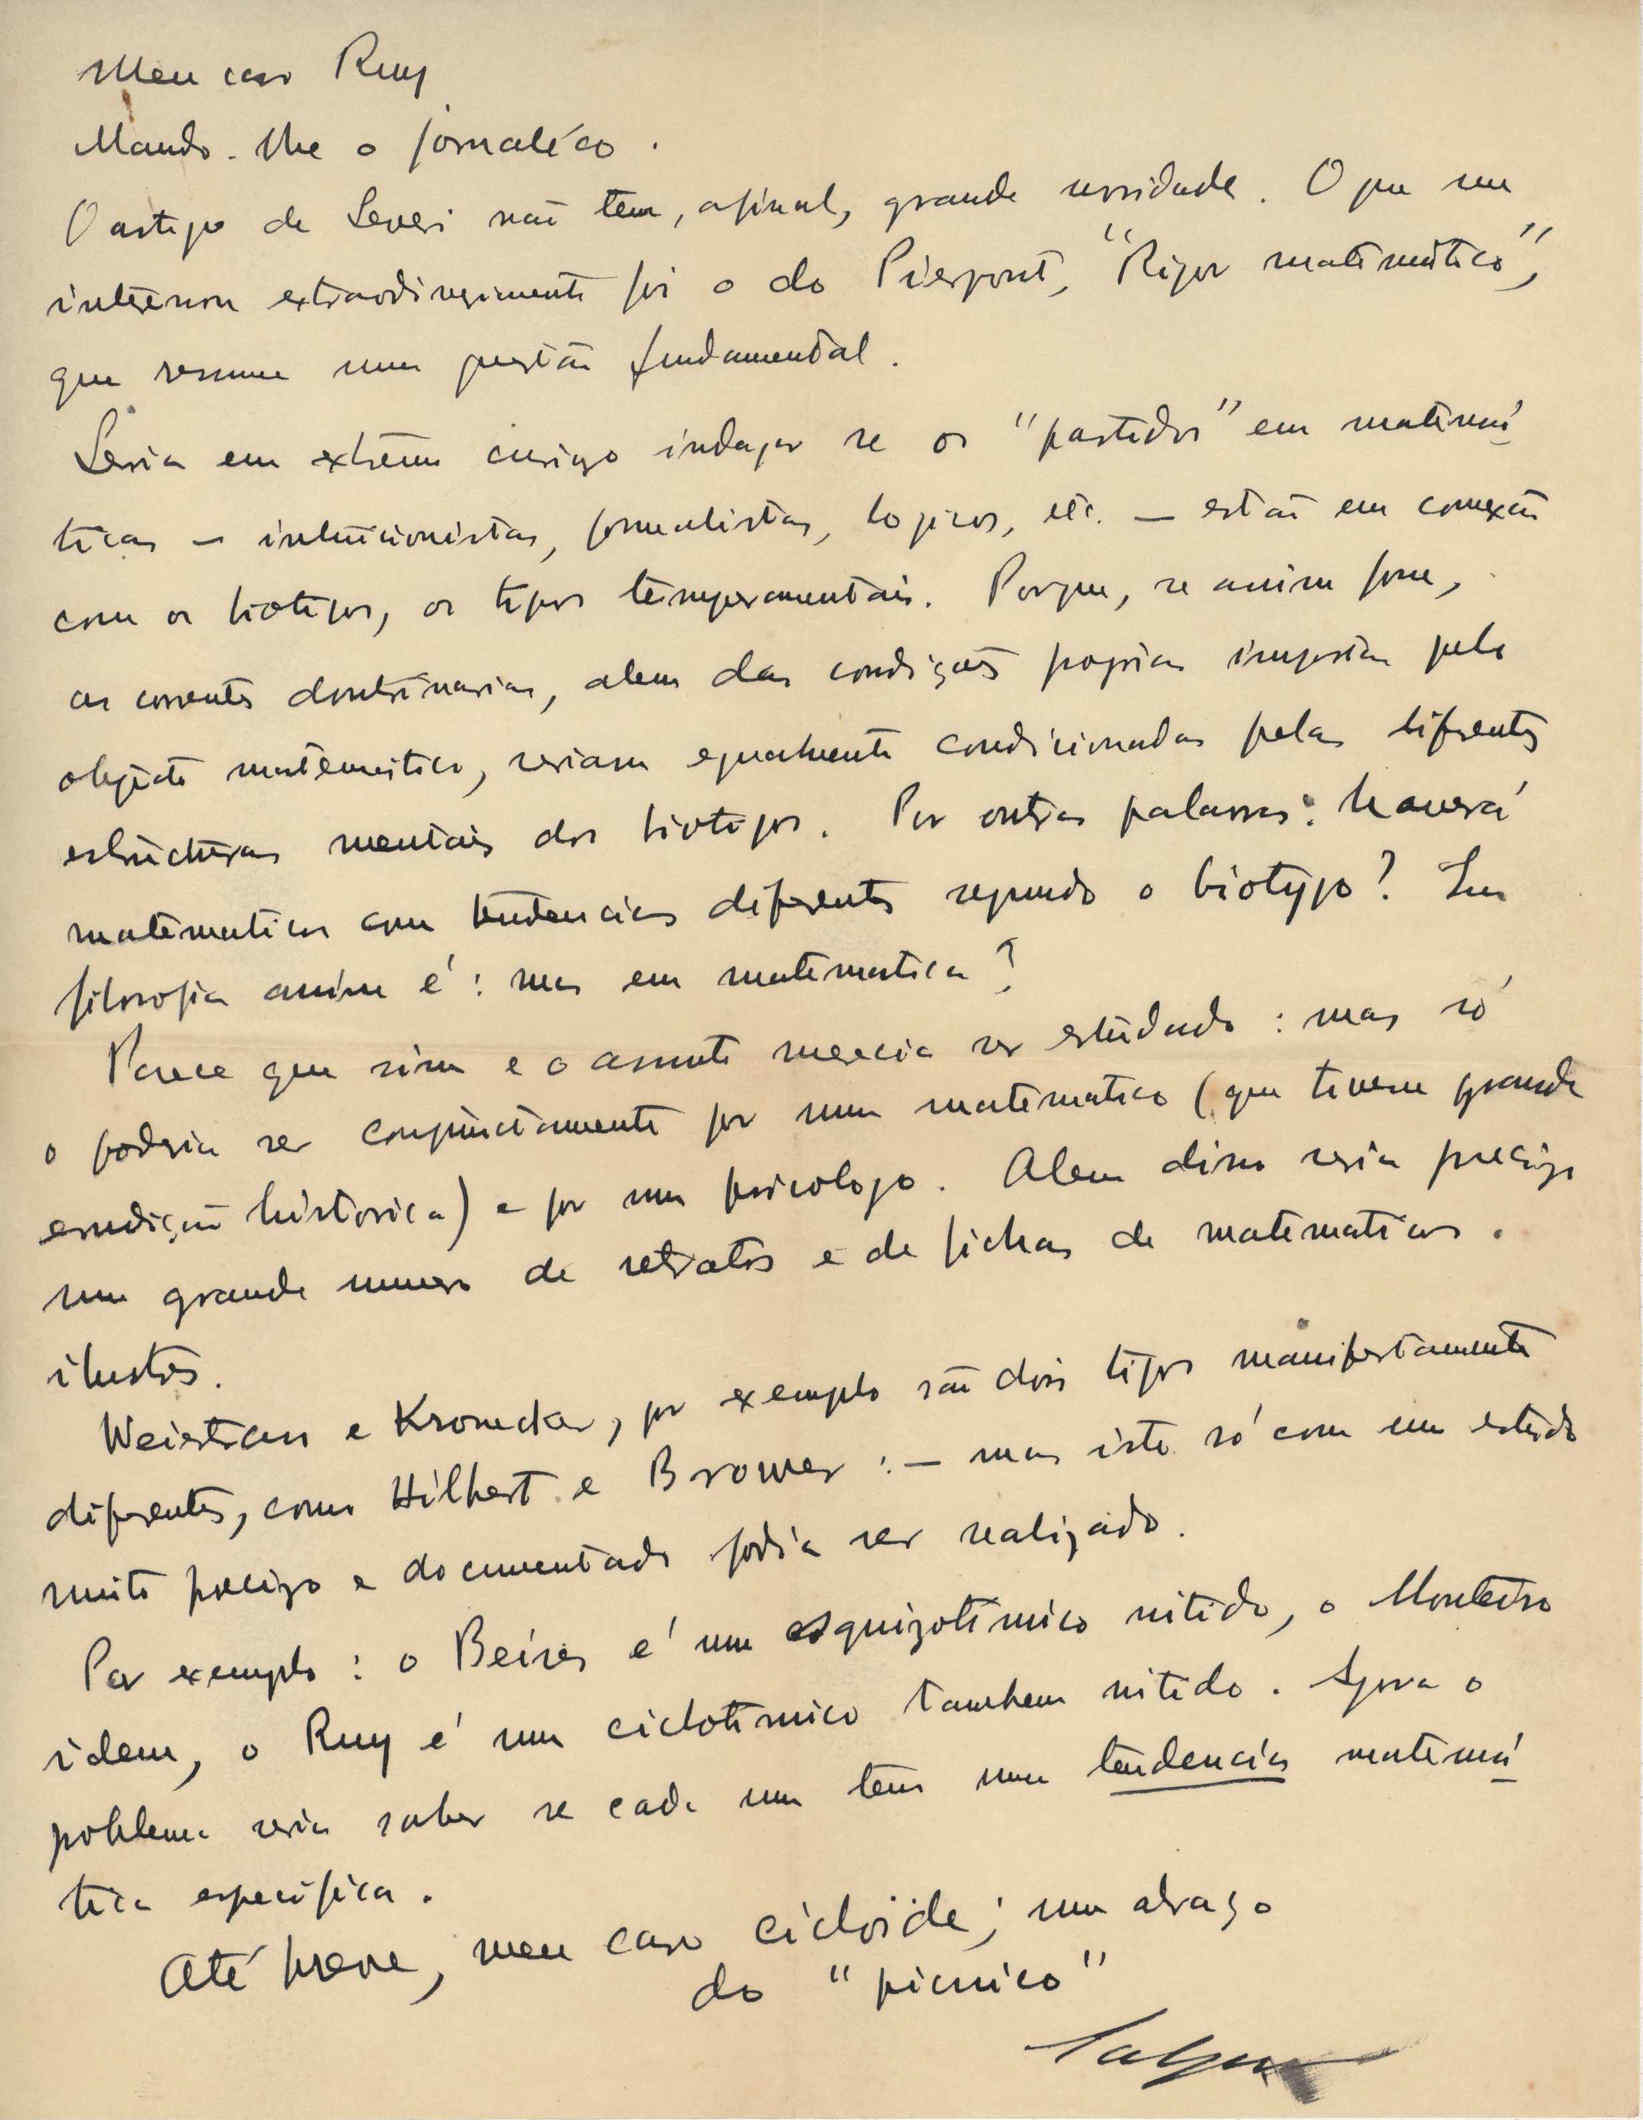 Meu caro Ruy
Mando-lhe o jornaléco.
O artigo de Severi não tem, afinal, grande novidade. O que me
interessou extraordinariamente foi o do Pierpont, "Rigor matemático",
que resume uma questão fundamental.
Seria em extremo curioso indagar se os "partidos" em matemá
ticas — intuicionistas, formalistas, logicos, etc. — estão em conexão
com os biotipos, os tipos temperamentais. Porque, se assim fosse,
as correntes doutrinarias, alem das condições proprias impostas pelo
objecto matematico, seriam egualmente condicionadas pelas diferentes
estructuras mentais dos biotipos. Por outras palavras: haverá
matematicos com tendencias diferentes segundo o biotypo? Em
filosofia assim é: mas em matematica?
Parece que sim e o assunto merecia ser estudado: mas só
o poderia ser conjunctamente por um matematico (que tivesse grande
erudição historica) e por um psicologo. Alem disso seria precizo
um grande numero de retratos e de fichas de matematicos.
ilustres.
Weierstrass e Kronecker, por exemplo são dois tipos manifestamente
diferentes, como Hilbert e Brouwer: — mas isto só com um estudo
muito precizo e documentado podia ser realizado.
Por exemplo: o Beires é um esquizotimico nitido, o Monteiro
idem, o Ruy é um ciclotimico tambem nitido. Agora o
problema seria saber se cada um tem uma tendencia matemá
tica especifica.
Até breve, meu caro cicloïde; um abraço
do "picnico"